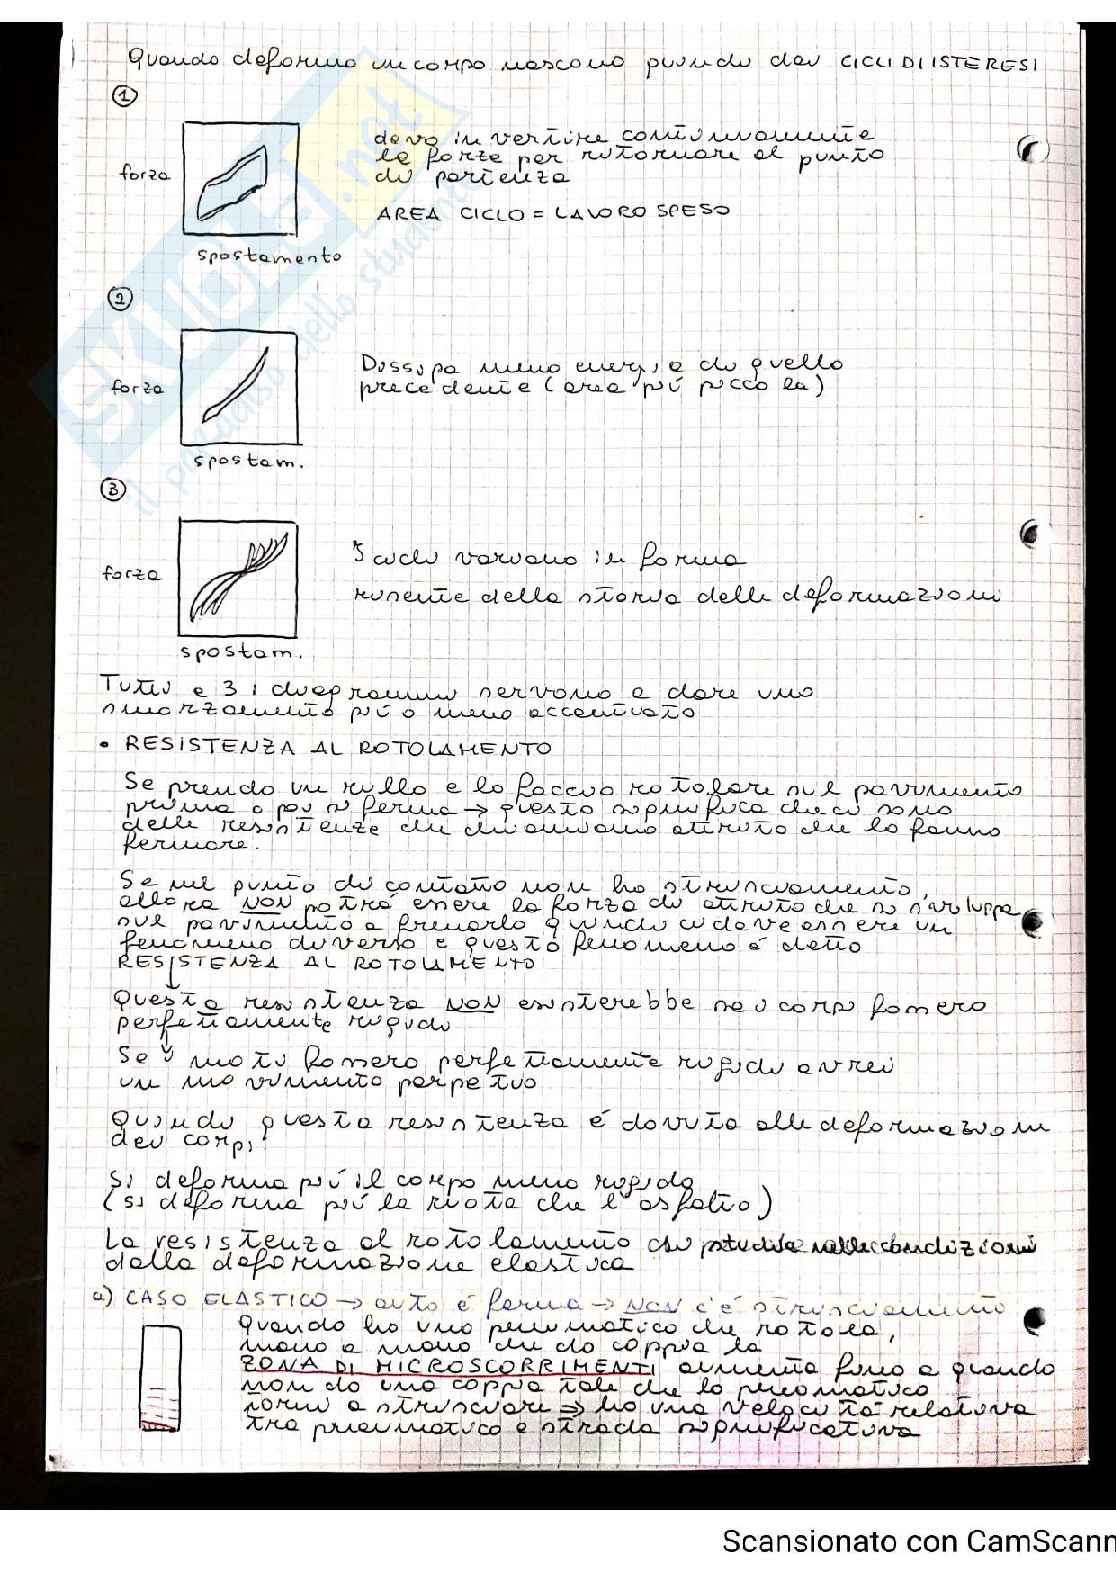 Quando deformo un corpo nascono quindi dei CICLI DI ISTERESI
1
devo invertire continuamente
le forze per ritornare al punto
di partenza
forza
AREA CICLO = LAVORO SPESO
spostamento
2
Dissipa meno energia di quello
precedente (area più piccola)
forza
spostam.
3
I cicli variano in forma
forza
risente della storia delle deformazioni
spostam.
Tutti e 3 i diagrammi servono a dare uno
smorzamento più o meno accentuato
• RESISTENZA AL ROTOLAMENTO
Se prendo un rullo e lo faccio rotolare sul pavimento
prima o poi si ferma → questo significa che ci sono
delle resistenze che chiamiamo attrito che lo fanno
fermare.
Se nel punto di contatto non ho strisciamento,
allora NON potrà essere la forza di attrito che si sviluppa
sul pavimento a frenarlo quindi ci deve essere un
fenomeno diverso e questo fenomeno è detto
RESISTENZA AL ROTOLAMENTO
Questa resistenza NON esisterebbe se i corpi fossero
perfettamente rigidi
Se i moti fossero perfettamente rigidi avrei
un movimento perpetuo
Quindi questa resistenza é dovuta alle deformazioni
dei corpi
Si deforma più il corpo meno rigido
(si deforma più la ruota che l'asfalto)
La resistenza al rotolamento si studia nelle condizioni
dalla deformazione elastica
a) CASO ELASTICO → auto é ferma → NON c'é strisciamento
Quando ho uno pneumatico che rotola,
mano a mano che do coppia la
ZONA DI MICROSCORRIMENTI aumenta fino a quando
non do una coppia tale che lo pneumatico
torni a strisciare ⇒ ho una velocità relativa
tra pneumatico e strada significativa
SKUOLA.net
il paradiso dello studente
Scansionato con CamScann